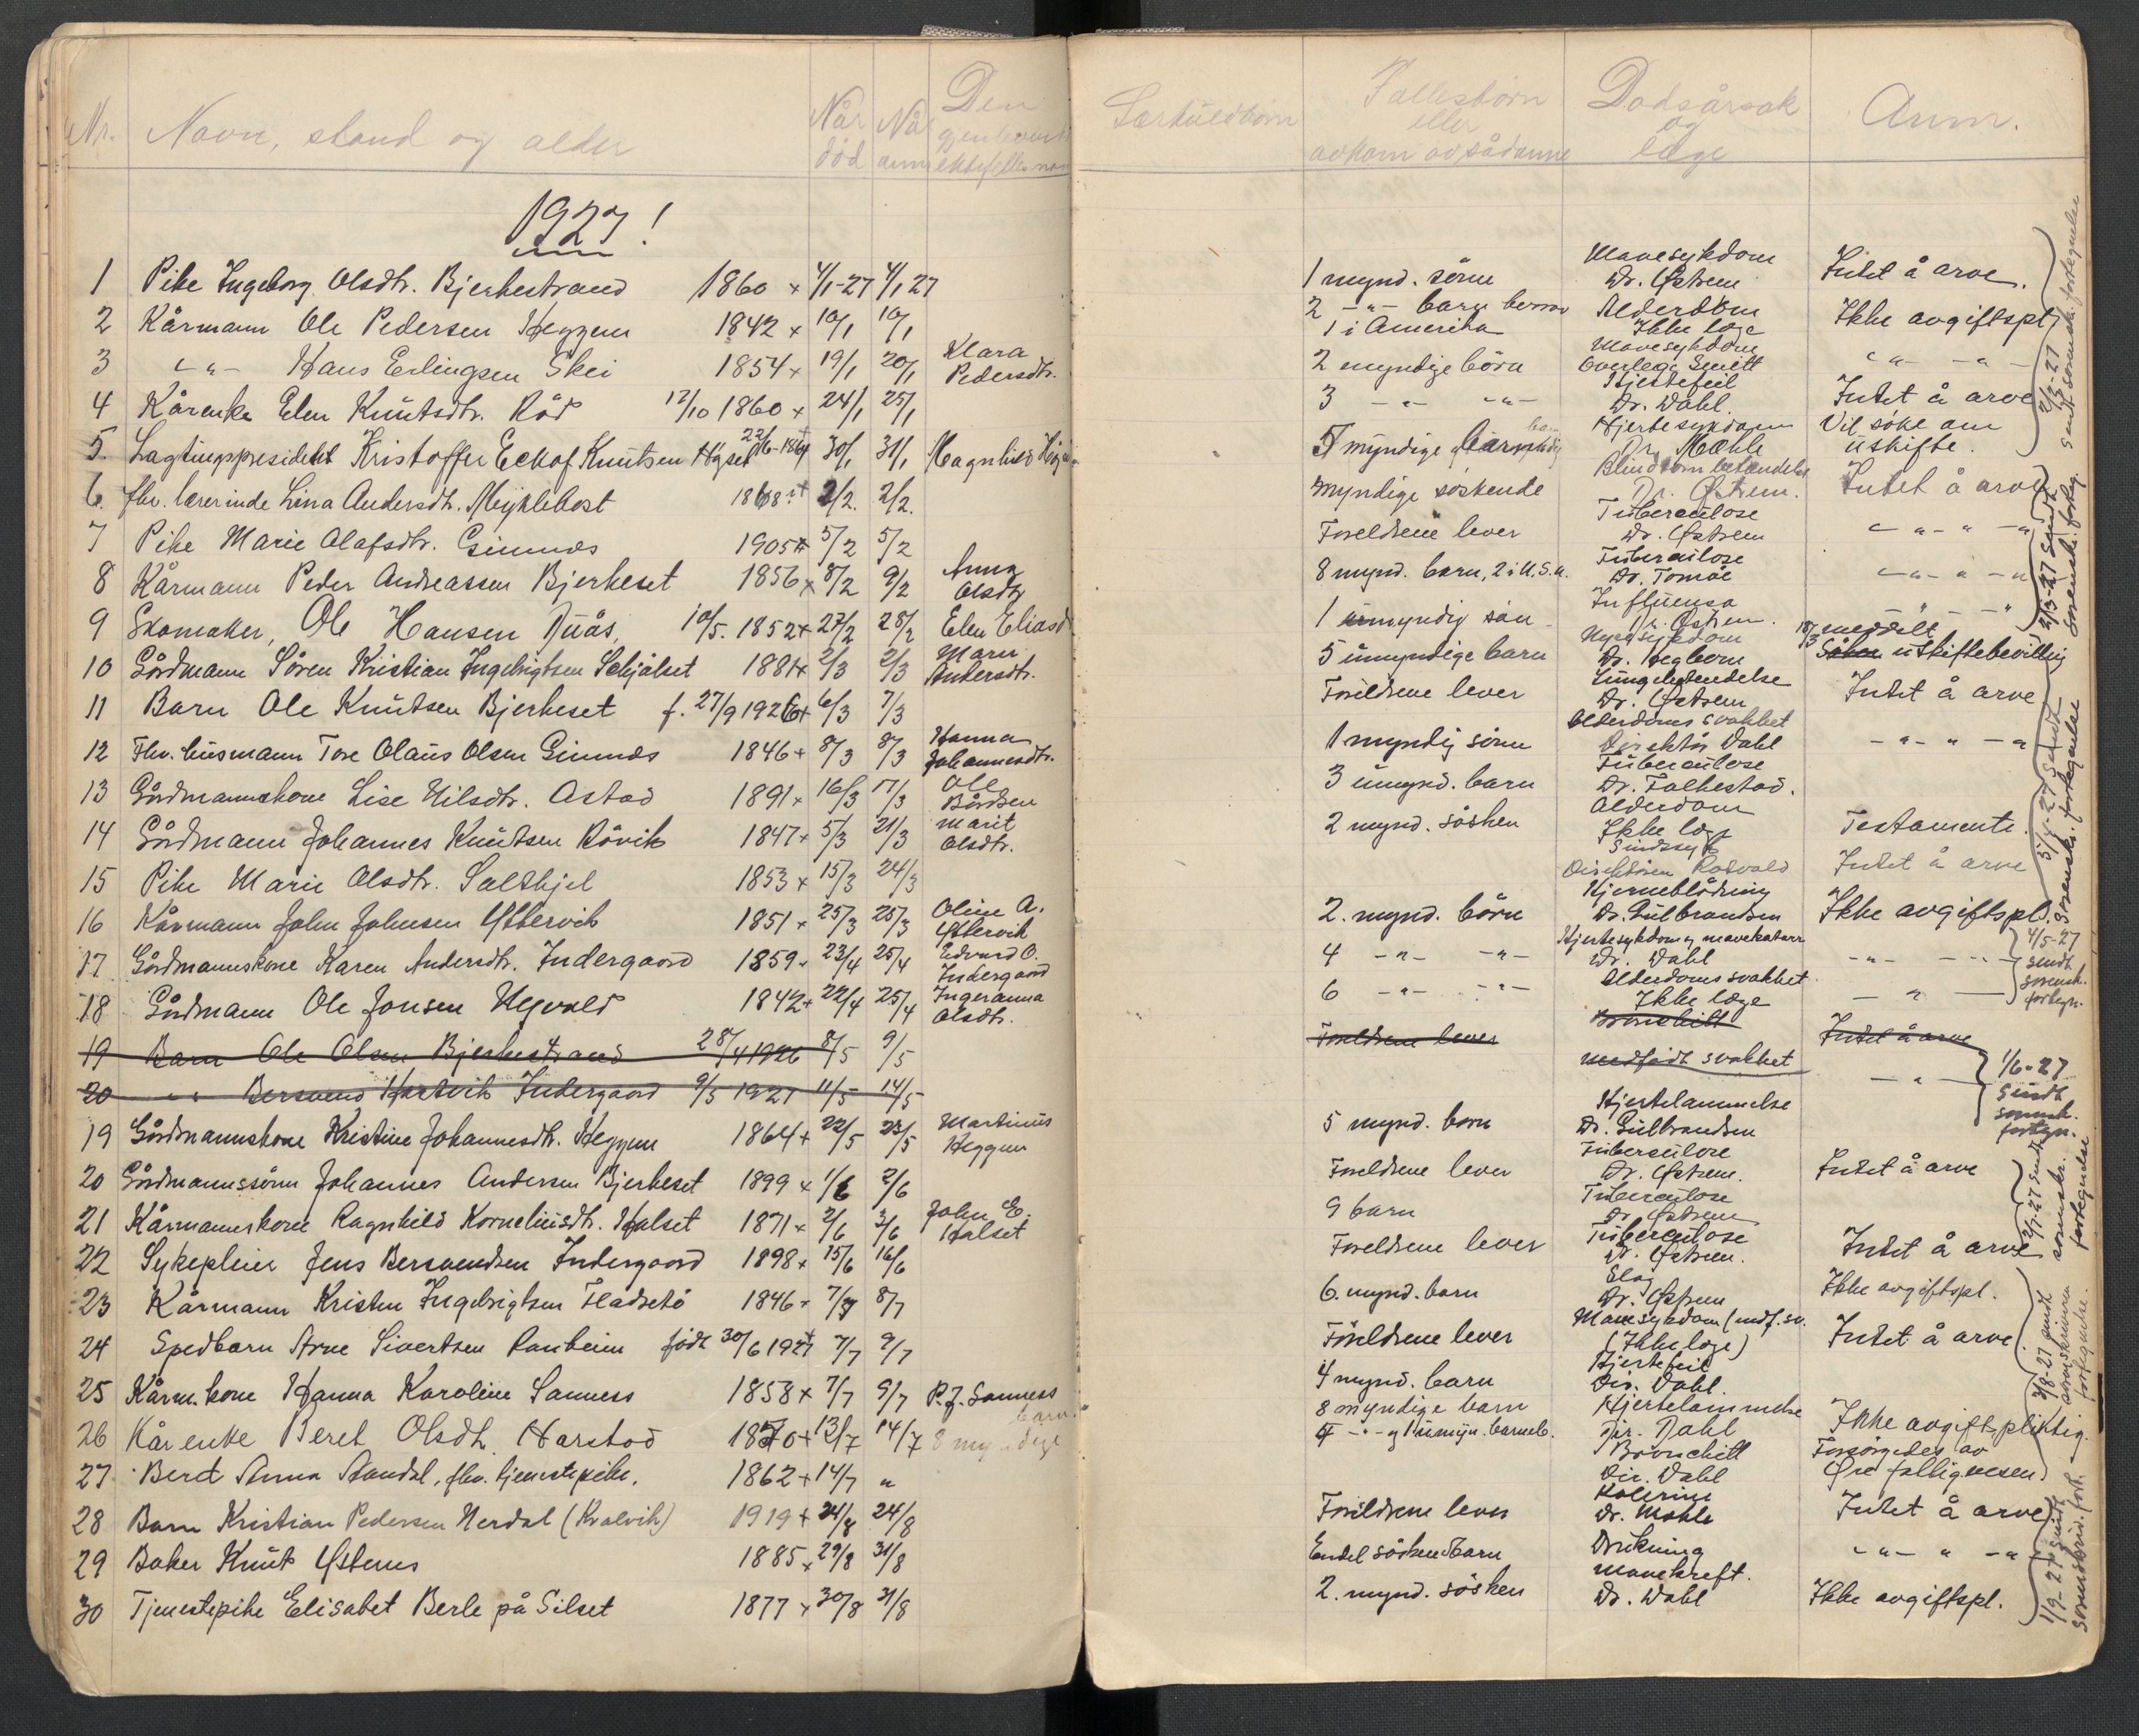 Nr. Navn, stand og alder Når død Når anm. Den gjenlevende ektefelles navn Særkuldbörn Fellesbörn eller avkom av sådanne Dödsårsak og læge Anm.
1927!
1 Pike Ingeborg Olsdtr. Bjerkestrand 1860 + 4/1-27 4/1 27 1 mynd. sönn Mavesykdom Dr. Östrem Intet å arve.
2 Kårmann Ole Pedersen Heggem 1842 + 10/1 10/1 2 -"- barn 1 i Amerika Alderdom Ikke læge Ikke avgiftspl.
3 -"- Hans Erlingsen Skei 1854 + 19/1 20/1 Klara Pedersdtr. 2 myndige börn Mavesykdom Overlege Smitt -"- -"-
4 Kårenke Elen Knutsdtr. Röd 12/10 1860 + 24/1 25/1 3 -"- -"- Hjertefeil Dr. Dahl. Intet å arve
5. Lagtingspresident Kristoffer Eckof Knutsen Högset 22/6-1864 + 30/1 31/1 Magnhild 5 myndige barn Hjertesykdom Dr. Mæhle Vil söke om uskifte.
6. fhv. lærerinde Lina Andersdtr. Myklebost 1868 + 2/2. 2/2. myndige söskende Blindtarmbetændelse Dr. Östrem. Intet å arve
7 Pike Marie Olafsdtr. Gimnes 1905 + 5/2 5/2 Foreldrene lever Tuberculose Dr. Östrem -"- " -"-
8 Kårmann Peder Andreassen Bjerkeset 1856 + 8/2 9/2 Anna Olsdtr 8 mynd. barn, 2 i U.S.A. Tuberculose Dr. Tomöe -"- " -"-
9 Skomaker, Ole Hansen Duås, 10/5. 1852 + 27/2 28/2 Elen Eliasd 1 umyndig sön Influensa Dr. Östrem. " "
10 Gårdmann Sören Kristian Ingebrigtsen Schjölset 1881 + 2/3 2/3 Maru Andersdtr. 5 umyndige barn Nyresykdom Dr. Hegbom 18/3 meddelt Söker uskiftebevilling
11 Barn Ole Knutsen Bjerkeset f. 27/9 1926 + 6/3 7/3 Foreldrene lever Lungebetendelse Dr. Östrem Intet å arve
12 Fhv. husmann Tore Olaus Olsen Gimnes 1846 + 8/3 8/3 Hanna Johannesdtr. 1 myndig sönn Alderdoms svakhet Direktör Dahl -"- " -"-
13 Gårdmannskone Lise Nilsdtr. Astad 1891 + 16/3 17/3 Ole Bårdsen 3 umynd. barn Tuberculose Dr. Falkestad.
14 Gårdmann Johannes Knutsen Rövik 1847 + 5/3 21/3 Marit Olsdtr. 2 mynd. sösken Alderdom Ikke læge Testamente.
15 Pike Marie Olsdtr. Saltkjel 1853 + 15/3 24/3 Sindssyk Direktören Rotvold Intet å arve
16 Kårmann John Johnsen Yttervik 1851 + 25/3 25/3 Oline A. Yttervik 2. mynd. börn Hjerneblödning Dr. Gulbrandsen Ikke avgiftspl.
17 Gårdmannskone Karen Andersdtr. Indergaard 1859 + 23/4 25/4 Edvard O. Indergaard 4 -"- -"- Hjertesykdom og mavekatarr Dr. Dahl -"- -"-
18 Gårdmann Ole Jonsen Ugvald 1842 + 22/4 25/4 Ingeranna Olsdtr. 6 -"- -"- Alderdoms svakhet Ikke læge -"-
19 Barn Ole Olsen Bjerkestrand 28/4 1926 8/5 9/5 Foreldrene lever Bronchitt Intet å arve
20 -"- Bersvend Hartvik Indergaard 9/5 1927 11/5 14/5 medfödt svakhet -"-
19 Gårdmannskone Kristine Johannesdtr. Heggem 1864 + 22/5 23/5 Martinus Heggem 5 mynd. born Hjertelammelse Dr. Gulbrandsen
20 Gårdmannssönn Johannes Andersen Bjerkeset 1899 + 1/6 2/6 Foreldrene lever Tuberculose Dr. Östrem. Intet å arve
21 Kårmannskone Ragnhild Korneliusdtr. Halset 1871 + 2/6 3/6 John E. Halset 9 barn Tuberculose Dr Östrem
22 Sykepleier Jens Bersvendsen Indergaard 1898 + 15/6 16/6 Foreldrene lever Tuberculose Dr. Östrem. Intet å arve
23 Kårmann Kristen Ingebrigtsen Fladsetö 1846 + 7/7 8/7 6. mynd. barn Slag Dr. Östrem Ikke avgiftspl.
24 Spedbarn Arne Sivertsen Ranheim födt 30/6 1927 + 7/7 9/7 Foreldrene lever Mavesykdom (medf. sv. (Ikke læge) Intet å arve
25 Kårm.kone Hanna Karoline Sanness 1858 + 7/7 9/7 P. J. Sanness 4 mynd. barn Hjertefeil Dir. Dahl.
26 Kårenke Beret Olsdtr. Harstad 1870 + 13/7 14/7 8 myndige barn 8 myndige barn Hjertelammelse Dir. Dahl Ikke avgiftspliktig.
27 Beret Anna Aandal, fhv. tjenestepike. 1862 + 14/7 " 4 -"- og 1 umyn. barneb. Bronchitt Dir. Dahl Forsörgedes av Öre fattigvesen
28 Barn Kristian Pedersen Nerdal (Kvalvik) 1919 + 24/8 24/8 Foreldrene lever Kolerine Dr. Mæhle Intet å arve
29 Baker Knut Ystenes 1885 + 29/8 31/8 Endel söskenebarn Drukning -"- " -"-
30 Tjenestepike Elisabet Berle på Silset 1877 + 30/8 31/8 2. mynd. sösken Mavekreft. Dr. Dahl Ikke avgiftspl.
2/2-27 sendt sorensk. fortegnelse
2/3-27 sendt sorenskr. forteg.
5/4-27 sendt sorenskr. fortegnelse
4/5-27 sendt sorensk. fortegn.
1/6-27 sendt sorensk. fortegn.
2/7-27 sendt sorenskr. fortegnelse
3/8-27 sendt sorenskriveren fortegnelse.
1/9-27 sendt